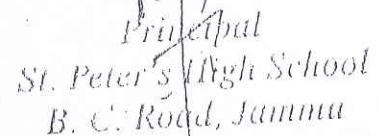 Principal
St. Peter's High School
B. C. Road, Jammu